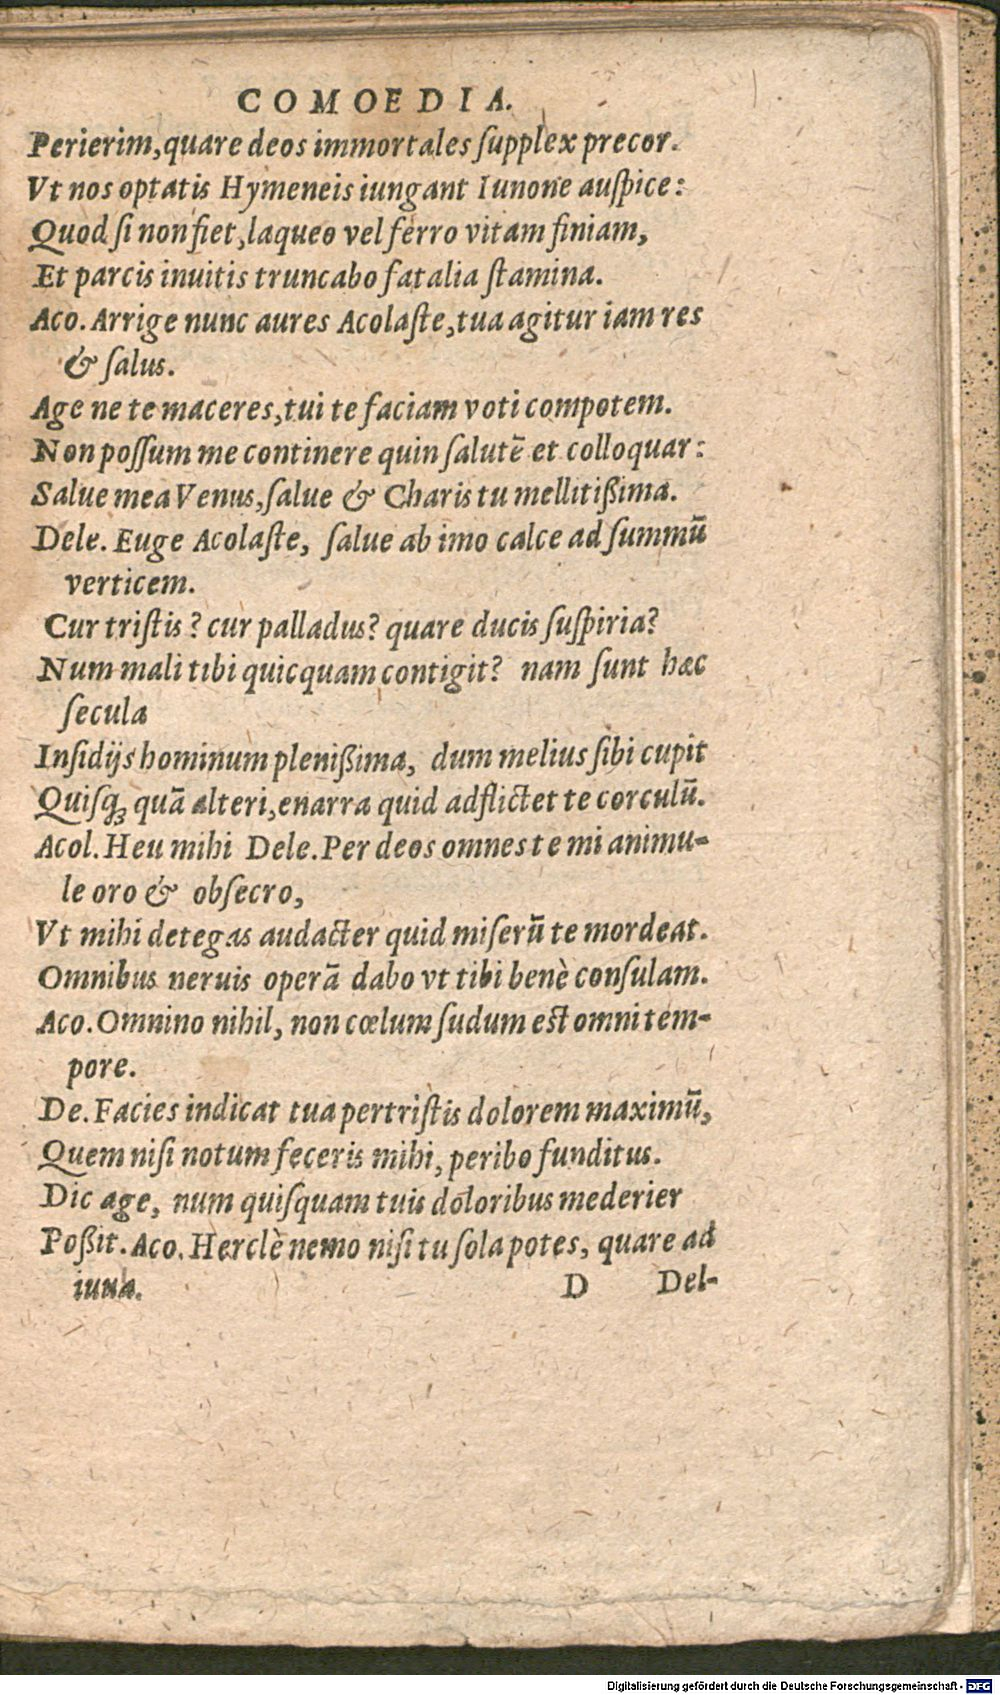 COMOEDIA.
Perierim, quare deos immortales ſupplex precor.
Vt nos optatis Hymeneis iungant Iunone auſpice:
Quod ſi non fiet, laqueo vel ferro vitam finiam,
Et parcis inuitis truncabo fatalia ſtamina.
Aco. Arrige nunc aures Acolaſte, tua agitur iam res
& ſalus.
Age ne te maceres, tui te faciam voti compotem.
Non poſſum me continere quin ſalutē et colloquar:
Salue mea Venus, ſalue & Charis tu mellitißima.
Dele. Euge Acolaſte, ſalue ab imo calce ad ſummū
verticem.
Cur triſtis? cur palladus? quare ducis ſuſpiria?
Num mali tibi quicquam contigit? nam ſunt hæc
ſecula
Inſidijs hominum plenißima, dum melius ſibi cupit
Quiſq; quā alteri, enarra quid adflictet te corculū.
Acol. Heu mihi Dele. Per deos omnes te mi animu-
le oro & obſecro,
Vt mihi detegas audacter quid miſerū te mordeat.
Omnibus neruis operā dabo vt tibi benè conſulam.
Aco. Omnino nihil, non cœlum ſudum eſt omni tem-
pore.
De. Facies indicat tua pertriſtis dolorem maximū,
Quem niſi notum feceris mihi, peribo funditus.
Dic age, num quiſquam tuis doloribus mederier
Poßit. Aco. Herclè nemo niſi tu ſola potes, quare ad
iuua.
D Del-
Digitalisierung gefördert durch die Deutsche Forschungsgemeinschaft - DFG